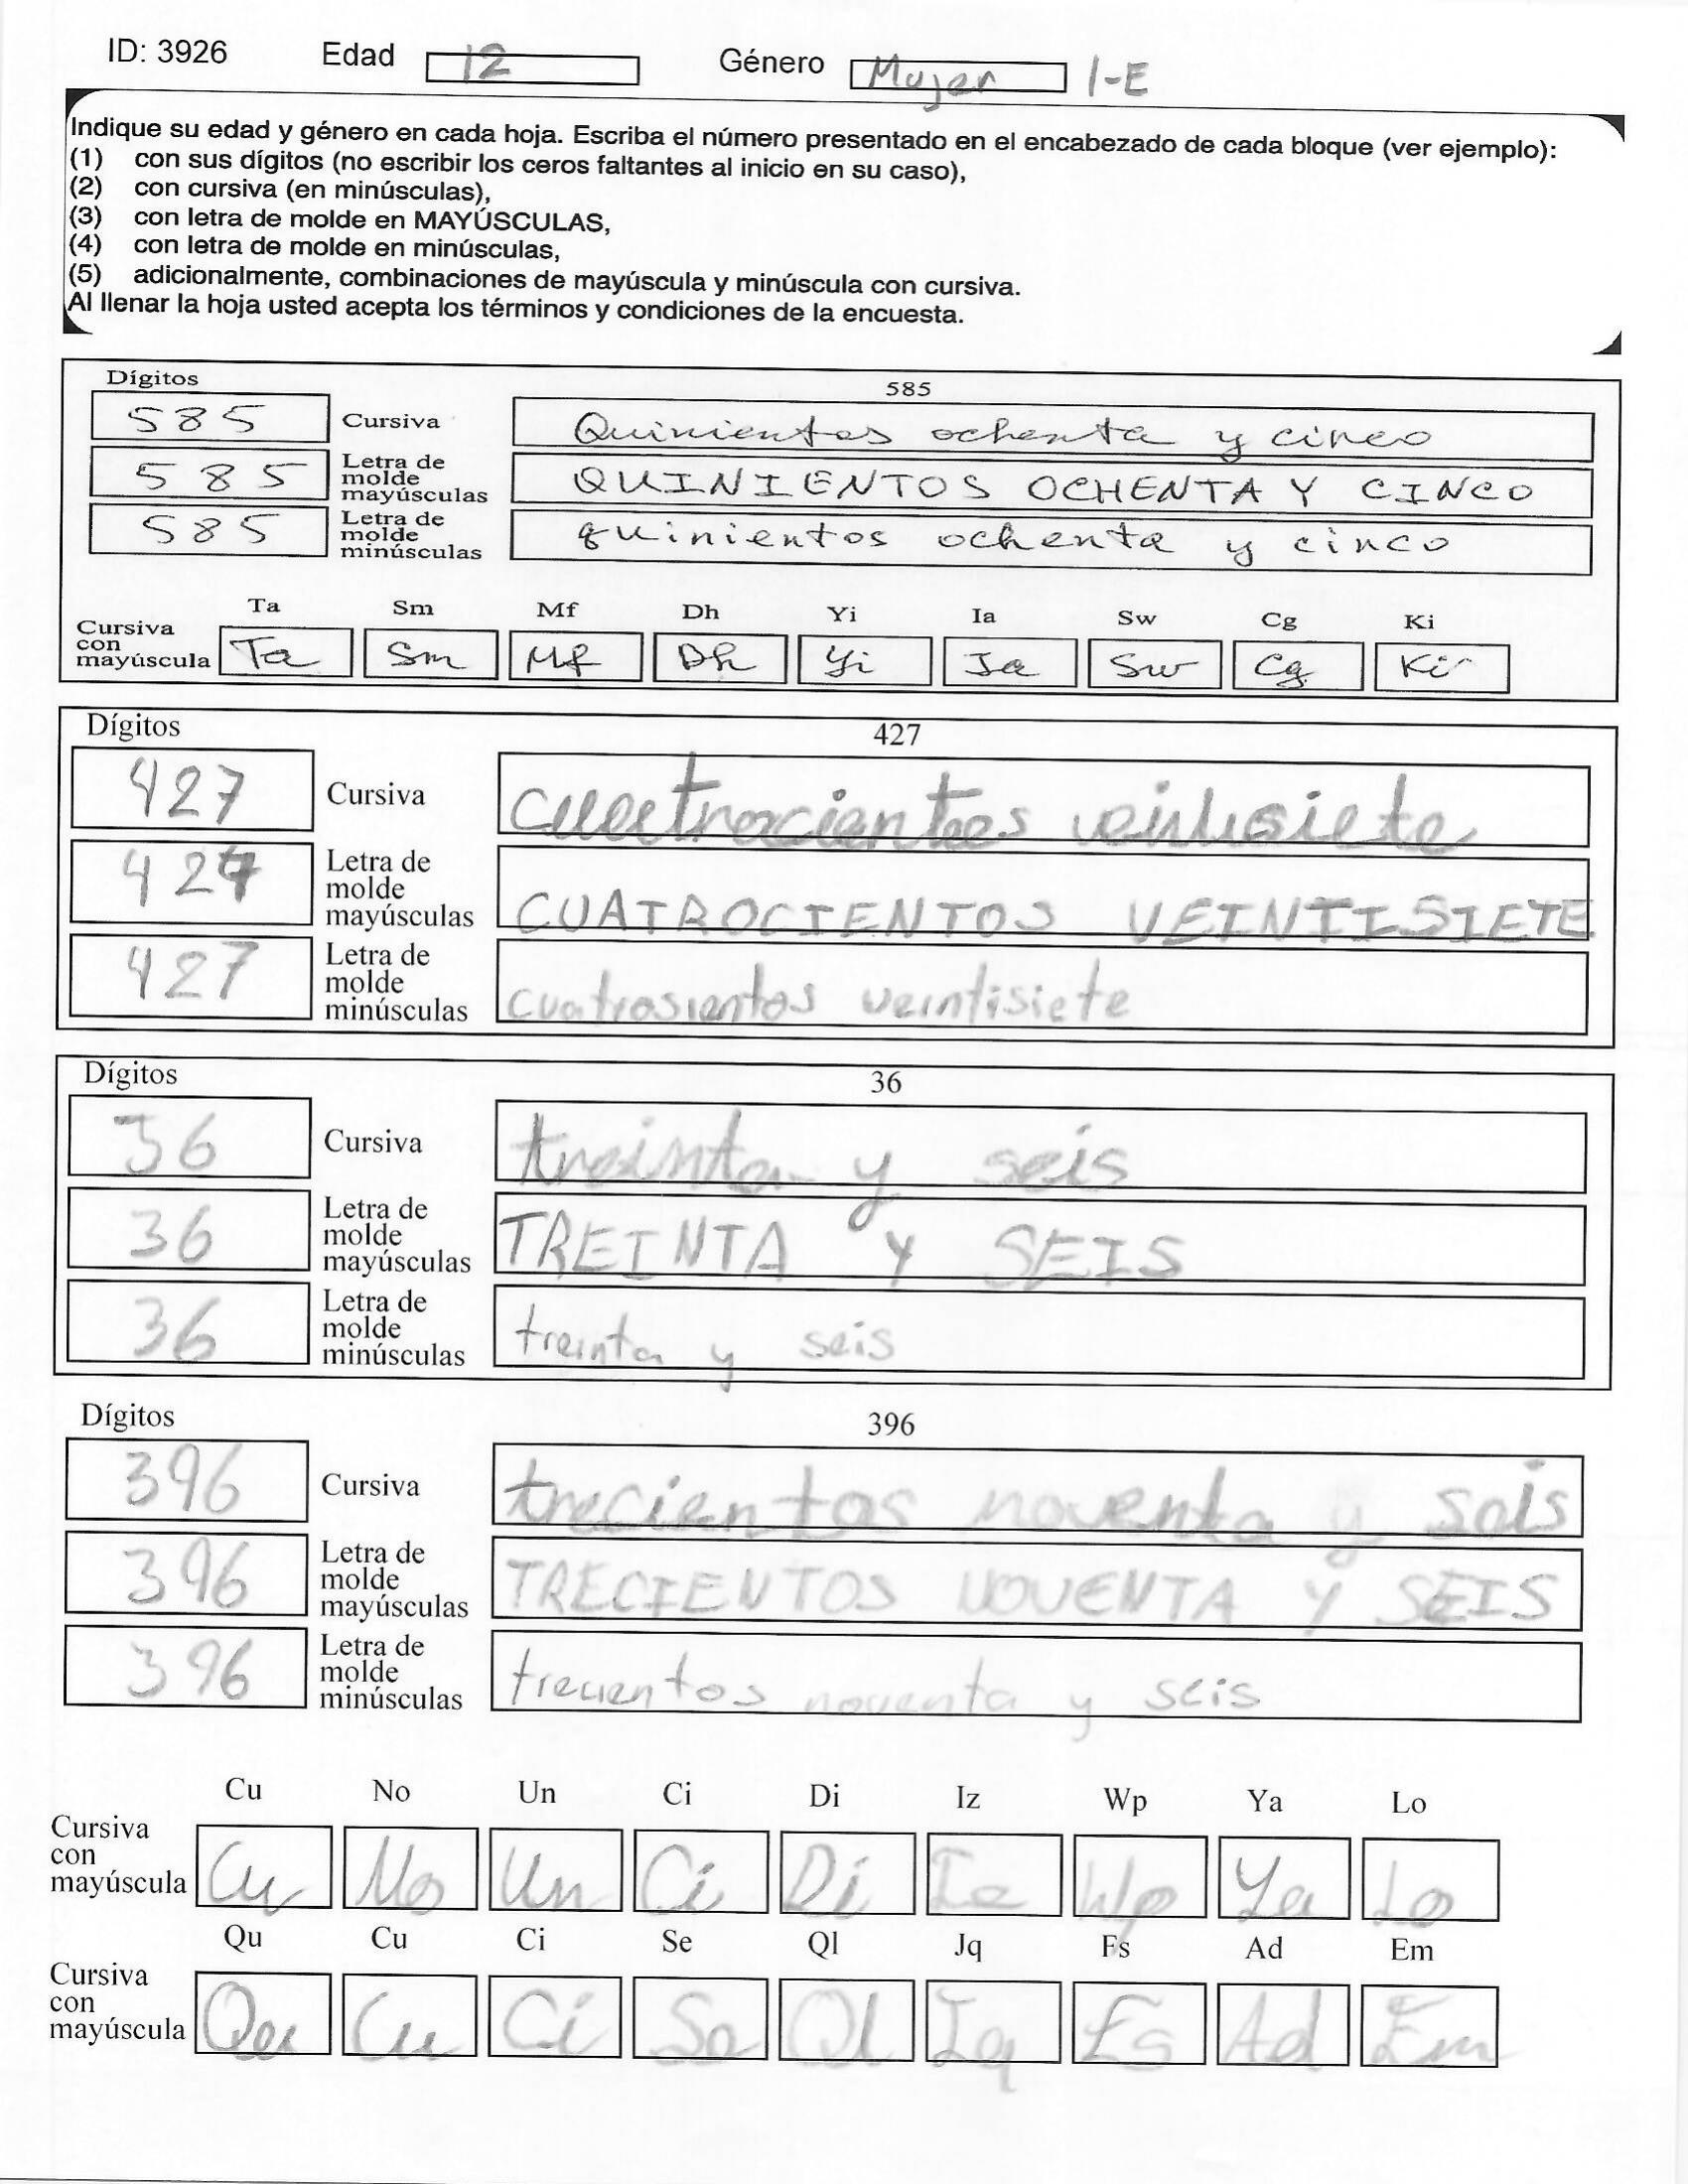 ID: 3926 Edad 12 Género Mujer 1-E
Indique su edad y género en cada hoja. Escriba el número presentado en el encabezado de cada bloque (ver ejemplo):
(1) con sus dígitos (no escribir los ceros faltantes al inicio en su caso),
(2) con cursiva (en minúsculas),
(3) con letra de molde en MAYÚSCULAS,
(4) con letra de molde en minúsculas,
(5) adicionalmente, combinaciones de mayúscula y minúscula con cursiva.
Al llenar la hoja usted acepta los términos y condiciones de la encuesta.
Dígitos 585
585 Cursiva Quinientos ochenta y cinco
585 Letra de molde mayúsculas QUINIENTOS OCHENTA Y CINCO
585 Letra de molde minúsculas quinientos ochenta y cinco
Ta Sm Mf Dh Yi Ia Sw Cg Ki
Cursiva con mayúscula Ta Sm Mf Dh Yi Ia Sw Cg Ki
Dígitos 427
427 Cursiva cuatrocientos
427 Letra de molde mayúsculas CUATROCIENTOS VEINTISIETE
427 Letra de molde minúsculas cuatrosientos veintisiete
Dígitos 36
36 Cursiva treinta y seis
36 Letra de molde mayúsculas TREINTA Y SEIS
36 Letra de molde minúsculas treinta y seis
Dígitos 396
396 Cursiva trecientos noventa y seis
396 Letra de molde mayúsculas TRECIENTOS NOVENTA Y SEIS
396 Letra de molde minúsculas trecientos noventa y seis
Cu No Un Ci Di Iz Wp Ya Lo
Cursiva con mayúscula Cu No Un Ci Di Iz Wp Ya Lo
Qu Cu Ci Se Ql Jq Fs Ad Em
Cursiva con mayúscula Qu Cu Ci Se Ql Jq Fs Ad Em